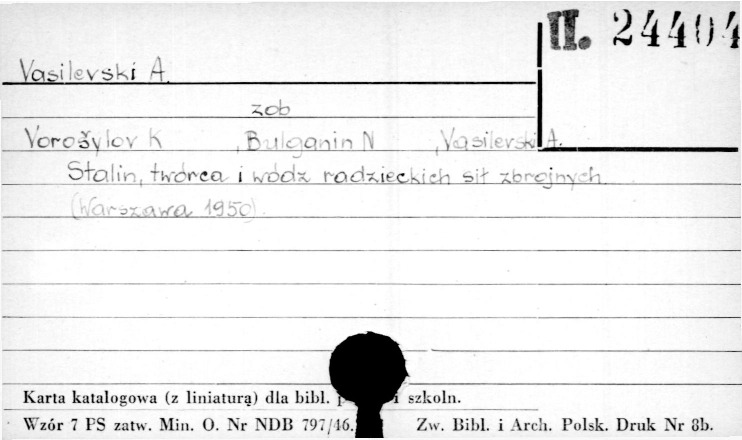 II. 24404
Vasilevski A.
zob
Vorošylov K , Bulganin N , Vasilevski A.
Stalin, twórca i wódz radzieckich sił zbrojnych
(Warszawa 1950).
Karta katalogowa (z liniaturą) dla bibl. p i szkoln.
Wzór 7 PS zatw. Min. O. Nr NDB 797/46. Zw. Bibl. i Arch. Polsk. Druk Nr 8b.